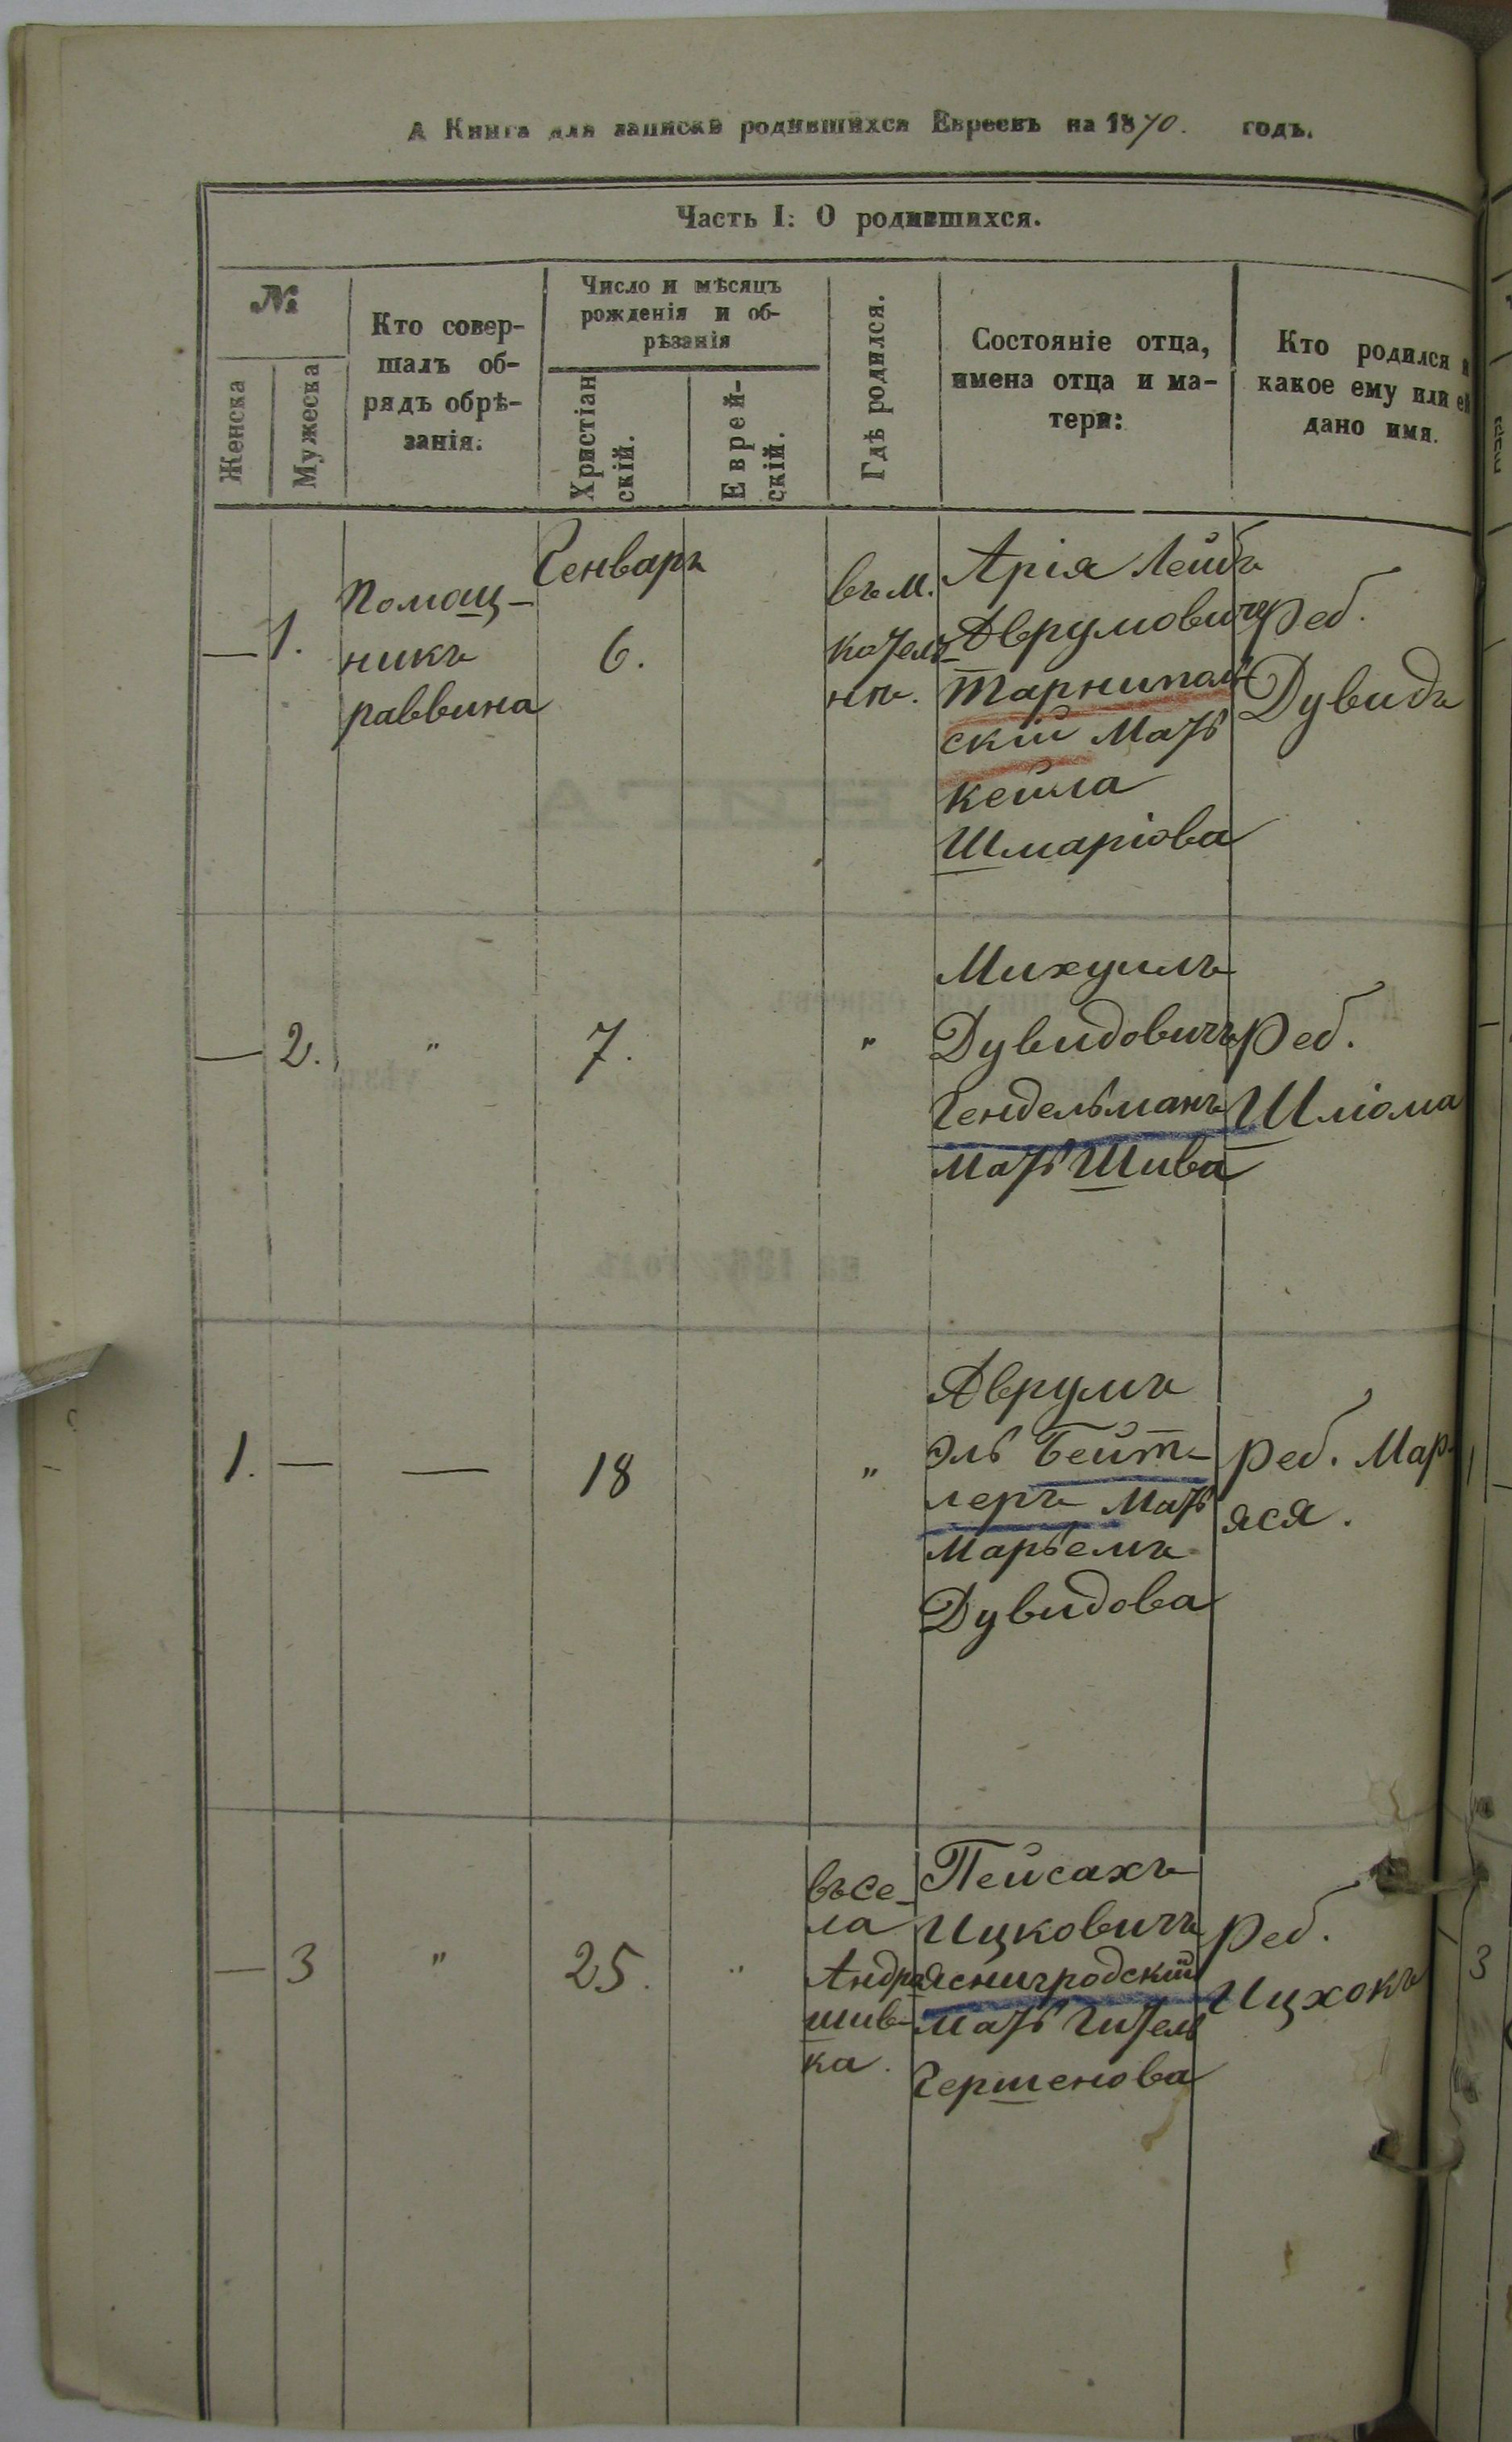 А Книга для записки родившихся Евреевъ на 1870. годъ.
Часть I: О родившихся.
№
Женска
Мужеска
Кто совер-
шалъ об-
рядъ обрѣ-
занія.
Число и мѣсяцъ
рожденія и об-
рѣзанія
Христіан
скій.
Еврей-
скій.
Гдѣ родился.
Состояніе отца,
имена отца и ма-
тери:
Кто родился и
какое ему или ей
дано имя.
— 1.
Помощ-
никъ
раввина
Генваръ
6.
въ м.
Арія Лейбъ
Аврумовичъ
Тарнипол
скій Мать
Кейла
Шмаріова
Реб.
Дувидъ
— 2.
"
7.
"
Михуилъ
Дувидовичъ
Гендельманъ
Мать Шива
Реб.
Шліома
1. —
—
18
"
Аврумъ
Эль Бейт-
леръ Мать
Марьемъ
Дувидова
Реб. Мар-
яся.
— 3
"
25.
"
въ се-
ла
Андру
шив-
ка.
Пейсахъ
Ицковичъ
Ясниградскій
Мать Гитель
Гершенова
Реб.
Ицхокъ
3